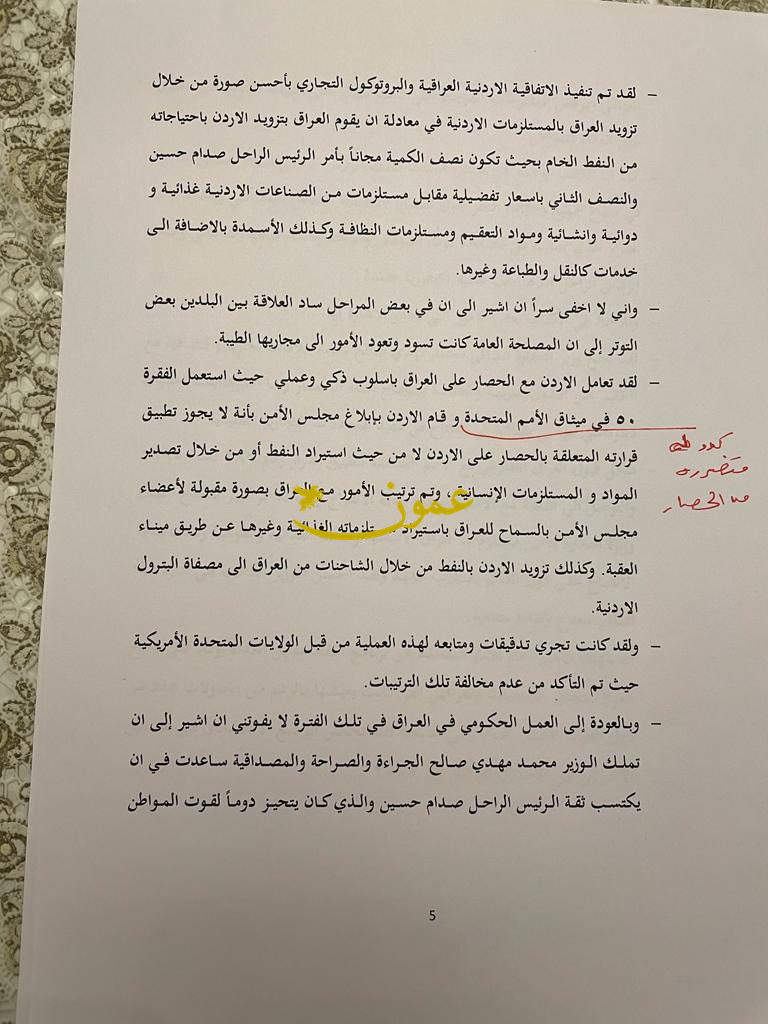 – لقد تم تنفيذ الاتفاقية الاردنية العراقية والبروتوكول التجاري بأحسن صورة من خلال
تزويد العراق بالمستلزمات الاردنية في معادلة ان يقوم العراق بتزويد الاردن باحتياجاته
من النفط الخام بحيث تكون نصف الكمية مجاناً بأمر الرئيس الراحل صدام حسين
والنصف الثاني باسعار تفضيلية مقابل مستلزمات من الصناعات الاردنية غذائية و
دوائية وانشائية ومواد التعقيم ومستلزمات النظافة وكذلك الأسمدة بالاضافة الى
خدمات كالنقل والطباعة وغيرها.
– واني لا اخفى سراً ان اشير الى ان في بعض المراحل ساد العلاقة بين البلدين بعض
التوتر إلى ان المصلحة العامة كانت تسود وتعود الأمور الى مجاريها الطيبة.
– لقد تعامل الاردن مع الحصار على العراق باسلوب ذكي وعملي حيث استعمل الفقرة
٥٠ في ميثاق الأمم المتحدة و قام الاردن بإبلاغ مجلس الأمن بأنة لا يجوز تطبيق
قرارته المتعلقة بالحصار على الاردن لا من حيث استيراد النفط أو من خلال تصدير
المواد و المستلزمات الإنسانية، وتم ترتيب الأمور مع العراق بصورة مقبولة لأعضاء
مجلس الأمن بالسماح للعراق باستيراد مستلزماته الغذائية وغيرها عن طريق ميناء
العقبة. وكذلك تزويد الاردن بالنفط من خلال الشاحنات من العراق الى مصفاة البترول
الاردنية.
– ولقد كانت تجري تدقيقات ومتابعه لهذه العملية من قبل الولايات المتحدة الأمريكية
حيث تم التأكد من عدم مخالفة تلك الترتيبات.
– وبالعودة إلى العمل الحكومي في العراق في تلك الفترة لا يفوتني ان اشير إلى ان
تملك الوزير محمد مهدي صالح الجراءة والصراحة والمصداقية ساعدت في ان
يكتسب ثقة الرئيس الراحل صدام حسين والذي كان يتحيز دوماً لقوت المواطن
متضررة
من الحصار
عمون
5